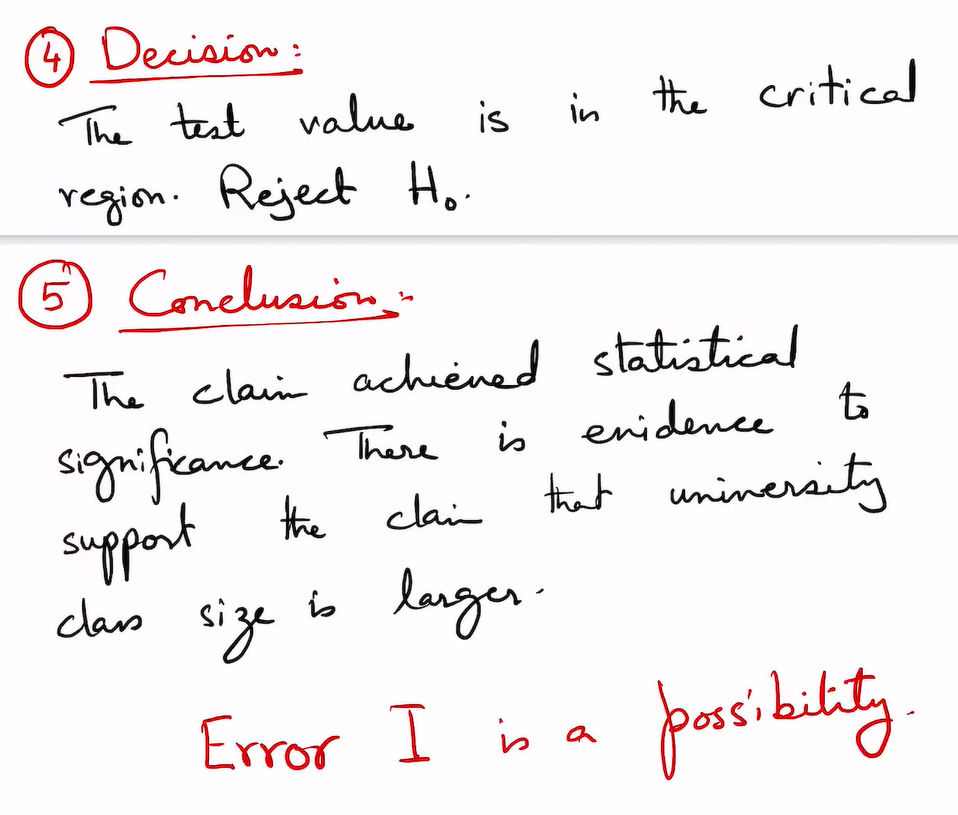 ④ Decision:
The test value is in the critical
region. Reject H₀.
⑤ Conclusion:
The claim achieved statistical
significance. There is evidence to
support the claim that university
class size is larger.
Error I is a possibility.